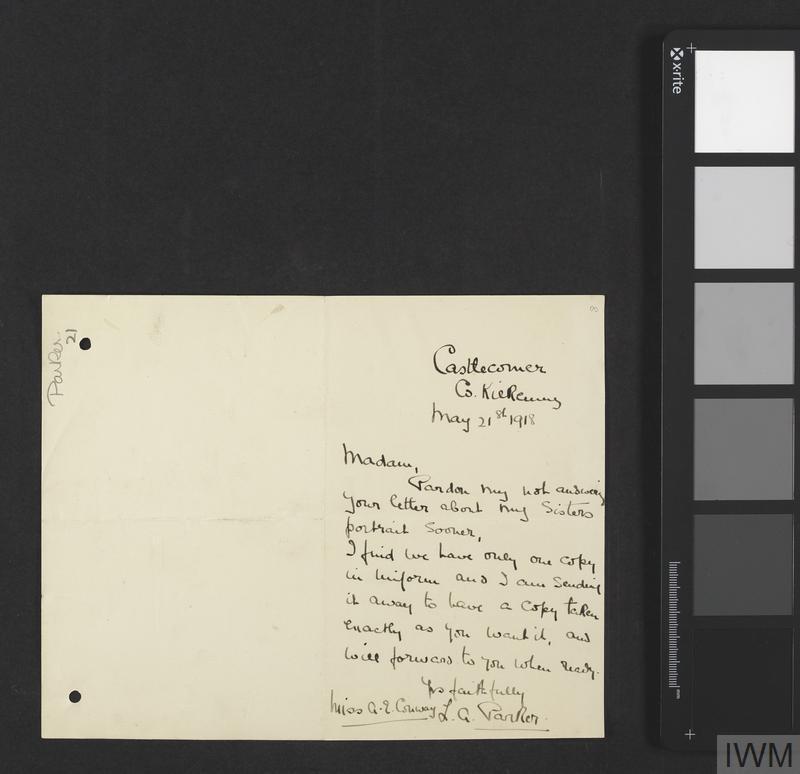 x-rite
8
Parker.
21
Castlecomer
Co. Kilkenny
May 21st 1918
Madam,
Pardon my not answering
your letter about my Sisters
portrait sooner,
I find we have only one copy
in uniform and I am sending
it away to have a copy taken
exactly as you want it, and
will forward to you when ready.
Yrs faithfully
Miss A. E. Conway L. A. Parker.
mm
IWM